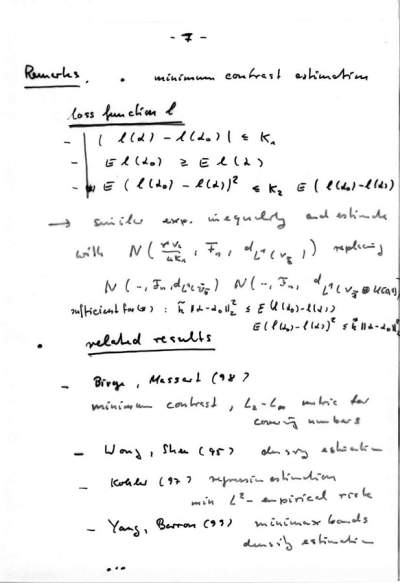 - 7 -
Remarks. • minimum contrast estimation
loss function l
- | l(α) - l(α₀) | ≤ K₁
- E l(α₀) ≥ E l(α)
- E ( l(α₀) - l(α))² ≤ K₂ E ( l(α₀) - l(α))
→ similar exp. inequality and estimate
with N ( , F̄ₙ, ) replacing
N ( -, F̄ₙ, ) N ( -, F̄ₙ, )
sufficient for (·) : k̃ ‖α - α₀‖₂² ≤ E (l(α₀) - l(α))
E(l(α₀) - l(α))² ≤ ‖α - α₀‖²
• related results
- Birge, Massart (98)
minimum contrast, L₂-L∞ metric for
covering numbers
- Wong, Shen (95) density estimation
- Kohler (97) regression estimation
min L²-empirical risk
- Yang, Barron (99) minimax bounds
density estimation
...